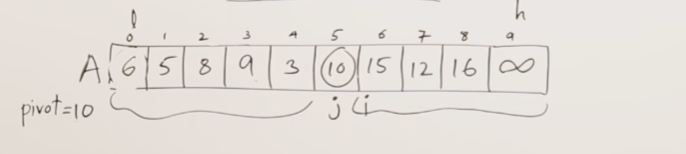 l h
0 1 2 3 4 5 6 7 8 9
A 6 5 8 9 3 10 15 12 16 ∞
pivot=10 j i